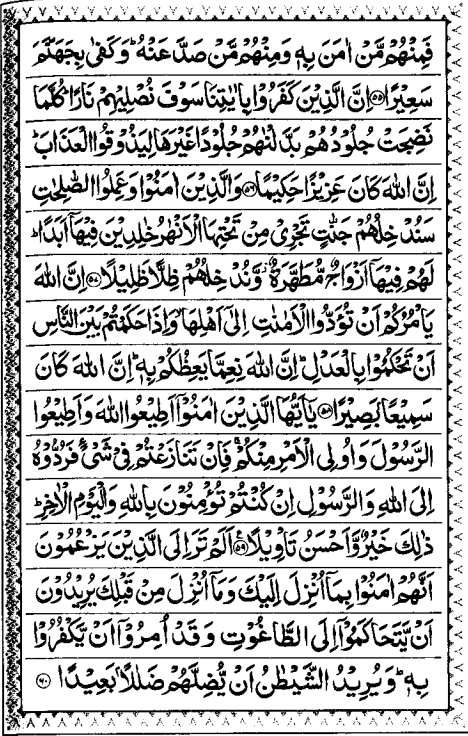 فَمِنْهُمْ مَّنْ اٰمَنَ بِهٖ وَمِنْهُمْ مَّنْ صَدَّ عَنْهُ ؕ وَكَفٰى بِجَهَنَّمَ
سَعِيْرًا ﴿۵۵﴾ اِنَّ الَّذِيْنَ كَفَرُوْا بِاٰيٰتِنَا سَوْفَ نُصْلِيْهِمْ نَارًا ؕ كُلَّمَا
نَضِجَتْ جُلُوْدُهُمْ بَدَّلْنٰهُمْ جُلُوْدًا غَيْرَهَا لِيَذُوْقُوا الْعَذَابَ ؕ
اِنَّ اللّٰهَ كَانَ عَزِيْزًا حَكِيْمًا ﴿۵۶﴾ وَالَّذِيْنَ اٰمَنُوْا وَعَمِلُوا الصّٰلِحٰتِ
سَنُدْخِلُهُمْ جَنّٰتٍ تَجْرِيْ مِنْ تَحْتِهَا الْاَنْهٰرُ خٰلِدِيْنَ فِيْهَاۤ اَبَدًا ؕ
لَهُمْ فِيْهَاۤ اَزْوَاجٌ مُّطَهَّرَةٌ ؗ وَّنُدْخِلُهُمْ ظِلًّا ظَلِيْلًا ﴿۵۷﴾ اِنَّ اللّٰهَ
يَاْمُرُكُمْ اَنْ تُؤَدُّوا الْاَمٰنٰتِ اِلٰۤى اَهْلِهَا ۙ وَاِذَا حَكَمْتُمْ بَيْنَ النَّاسِ
اَنْ تَحْكُمُوْا بِالْعَدْلِ ؕ اِنَّ اللّٰهَ نِعِمَّا يَعِظُكُمْ بِهٖ ؕ اِنَّ اللّٰهَ كَانَ
سَمِيْعًۢا بَصِيْرًا ﴿۵۸﴾ يٰۤاَيُّهَا الَّذِيْنَ اٰمَنُوْۤا اَطِيْعُوا اللّٰهَ وَاَطِيْعُوا
الرَّسُوْلَ وَاُولِي الْاَمْرِ مِنْكُمْ ۚ فَاِنْ تَنَازَعْتُمْ فِيْ شَيْءٍ فَرُدُّوْهُ
اِلَى اللّٰهِ وَالرَّسُوْلِ اِنْ كُنْتُمْ تُؤْمِنُوْنَ بِاللّٰهِ وَالْيَوْمِ الْاٰخِرِ ؕ
ذٰلِكَ خَيْرٌ وَّاَحْسَنُ تَاْوِيْلًا ﴿۵۹﴾ اَلَمْ تَرَ اِلَى الَّذِيْنَ يَزْعُمُوْنَ
اَنَّهُمْ اٰمَنُوْا بِمَاۤ اُنْزِلَ اِلَيْكَ وَمَاۤ اُنْزِلَ مِنْ قَبْلِكَ يُرِيْدُوْنَ
اَنْ يَّتَحَاكَمُوْۤا اِلَى الطَّاغُوْتِ وَقَدْ اُمِرُوْۤا اَنْ يَّكْفُرُوْا
بِهٖ ؕ وَيُرِيْدُ الشَّيْطٰنُ اَنْ يُّضِلَّهُمْ ضَلٰلًاۢ بَعِيْدًا ﴿۶۰﴾